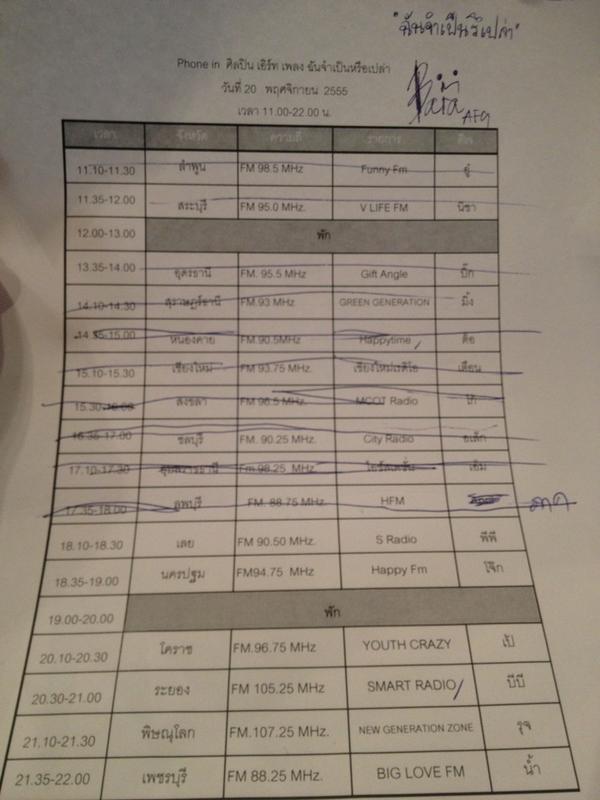 "ฉันจำเป็นรึเปล่า"
Phone in ศิลปิน เอิร์ท เพลง ฉันจำเป็นหรือเปล่า
วันที่ 20 พฤศจิกายน 2555
เวลา 11.00-22.00 น.
AF9
เวลา จังหวัด ความถี่ รายการ ดีเจ
11.10-11.30 ลำพูน FM 98.5 MHz Funny Fm ยู่
11.35-12.00 สระบุรี FM 95.0 MHz. V LIFE FM นิชา
12.00-13.00 พัก
13.35-14.00 อุดรธานี FM. 95.5 MHz Gift Angle บิ๊ก
14.10-14.30 สุราษฎร์ธานี FM.93 MHz GREEN GENERATION มิ้ง
14.35-15.00 หนองคาย FM.90.5MHz Happytime ต้อ
15.10-15.30 เชียงใหม่ FM 93.75 MHz. เชียงใหม่เรดิโอ เดือน
15.30-16.00 สงขลา FM 96.5 MHz. MCOT Radio
16.35-17.00 ชลบุรี FM. 90.25 MHz. City Radio
17.10-17.30 อุบลราชธานี Fm 98.25 MHz. เอ็ม
17.35-18.00 ลพบุรี FM. 88.75 MHz. HFM
18.10-18.30 เลย FM 90.50 MHz. S Radio พีพี
18.35-19.00 นครปฐม FM94.75 MHz Happy Fm โจ๊ก
19.00-20.00 พัก
20.10-20.30 โคราช FM.96.75 MHz YOUTH CRAZY เป้
20.30-21.00 ระยอง FM 105.25 MHz SMART RADIO บีบี
21.10-21.30 พิษณุโลก FM.107.25 MHz NEW GENERATION ZONE รุจ
21.35-22.00 เพชรบุรี FM 88.25 MHz. BIG LOVE FM น้ำ